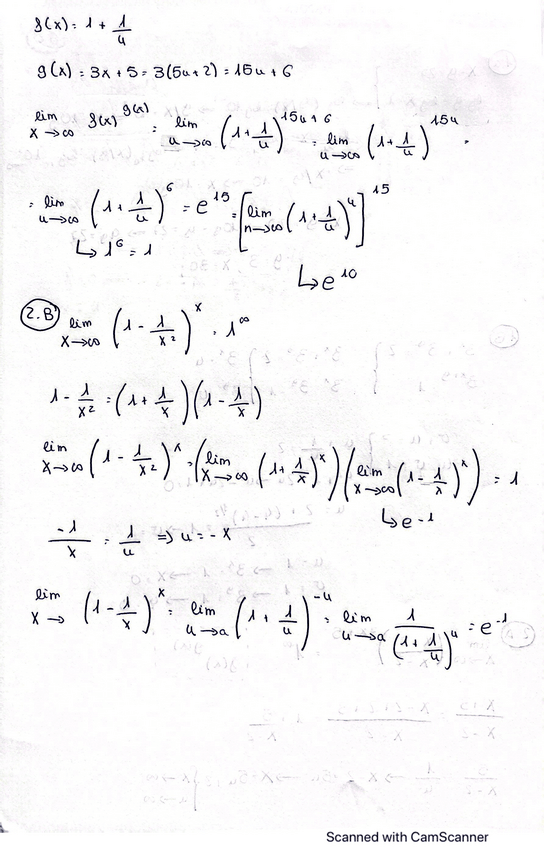 f(x) = 1 + 1/u
g(x) = 3x + 5 = 3(5u+2) = 15u + 6
lim x→∞ f(x)^g(x) = lim u→∞ (1 + 1/u)^15u+6 = lim u→∞ (1 + 1/u)^15u ·
= lim u→∞ (1 + 1/u)^6 = e^15 = [lim n→∞ (1 + 1/u)^u]^15
↳ 1^6 = 1
↳ e^10
2.B) lim x→∞ (1 - 1/x²)^x = 1^∞
1 - 1/x² = (1 + 1/x)(1 - 1/x)
lim x→∞ (1 - 1/x²)^x = (lim x→∞ (1 + 1/x)^x)(lim x→∞ (1 - 1/x)^x) = 1
↳ e^-1
-1/x = 1/u ⇒ u = -x
lim x→ (1 - 1/x)^x = lim u→a (1 + 1/u)^-u = lim u→a 1/(1 + 1/u)^u = e^-1
Scanned with CamScanner